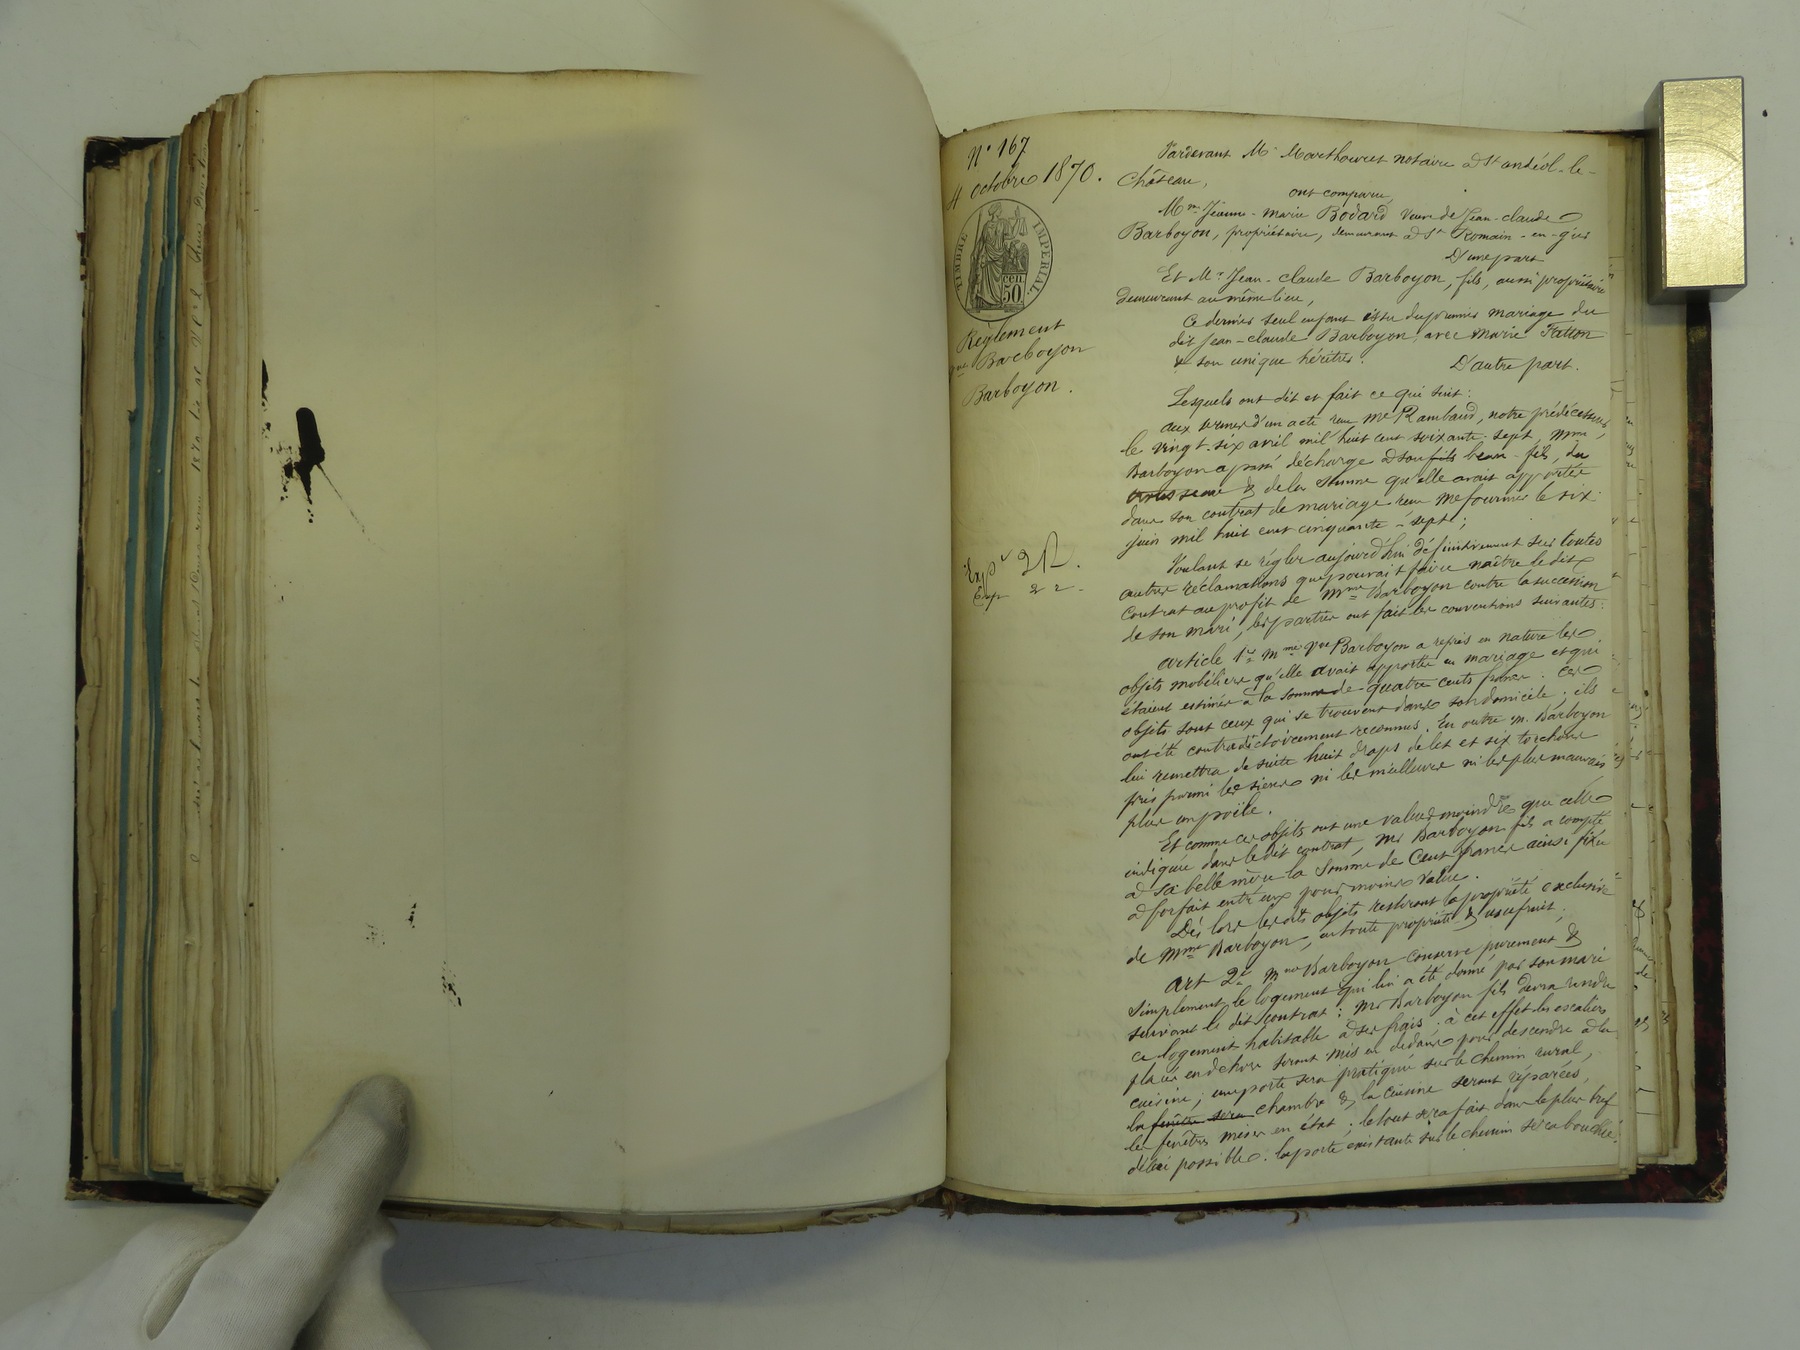 N° 167
4 octobre 1870.
TIMBRE IMPÉRIAL
50 cen
Règlement
Vve Barboyon
Barboyon.
Expé
Exp
Pardevant Me Marthouret notaire à St andéol-le-
Château,
ont comparu,
Mme Jeanne-marie Bodard veuve de Jean-claude
Barboyon, propriétaire, demeurant à St Romain-en-gier
D'une part
Et Mr Jean-claude Barboyon, fils, aussi propriétaire
demeurant au même lieu,
Ce dernier seul enfant issu du premier mariage du
dit Jean-claude Barboyon, avec marie Fatton
& son unique héritier. D'autre part.
Lesquels ont dit et fait ce qui suit:
aux termes d'un acte reçu me Rambaud, notre prédécesseur,
le vingt-six avril mil huit cent soixante-sept, mme
Barboyon a passé décharge à son fils beau-fils, du
trousseau & de la somme qu'elle avait apportée
dans son contrat de mariage reçu Me fournier le six
juin mil huit cent cinquante-sept;
Voulant se régler aujourd'hui définitivement sur toutes
autres réclamations que pouvait faire naître le dit
contrat au profit de mme Barboyon contre la succession
de son mari, les parties ont fait les conventions suivantes:
article 1er mme Vve Barboyon a repris en nature les
objets mobiliers qu'elle avait apportés en mariage et qui
étaient estimés à la somme de quatre cents francs. Ces
objets sont ceux qui se trouvent dans son domicile; ils
ont été contradictoirement reconnus. En outre m. Barboyon
lui remettra de suite huit draps de lit et six torchons
pris parmi les siens ni les meilleurs ni les plus mauvais
plus un poële.
Et comme ces objets ont une valeur moindre que celle
indiquée dans le dit contrat, mr Barboyon fils a compté
à sa belle mère la somme de Cent francs ainsi fixée
à forfait entre eux pour moins value.
Dès lors les dits objets resteront la propriété exclusive
de mme Barboyon, en toute propriété & usufruit.
art 2e mme Barboyon conserve purement &
simplement le logement qui lui a été donné par son mari
suivant le dit contrat; mr Barboyon fils devra rendre
ce logement habitable à ses frais; à cet effet les escaliers
placés en dehors seront mis en dedans pour descendre à la
cuisine; une porte sera pratiquée sur le chemin rural,
la fenêtre sera chambre & la cuisine seront réparées,
les fenêtres mises en état; le tout sera fait dans le plus bref
délai possible. la porte existante sur le chemin sera bouchée.